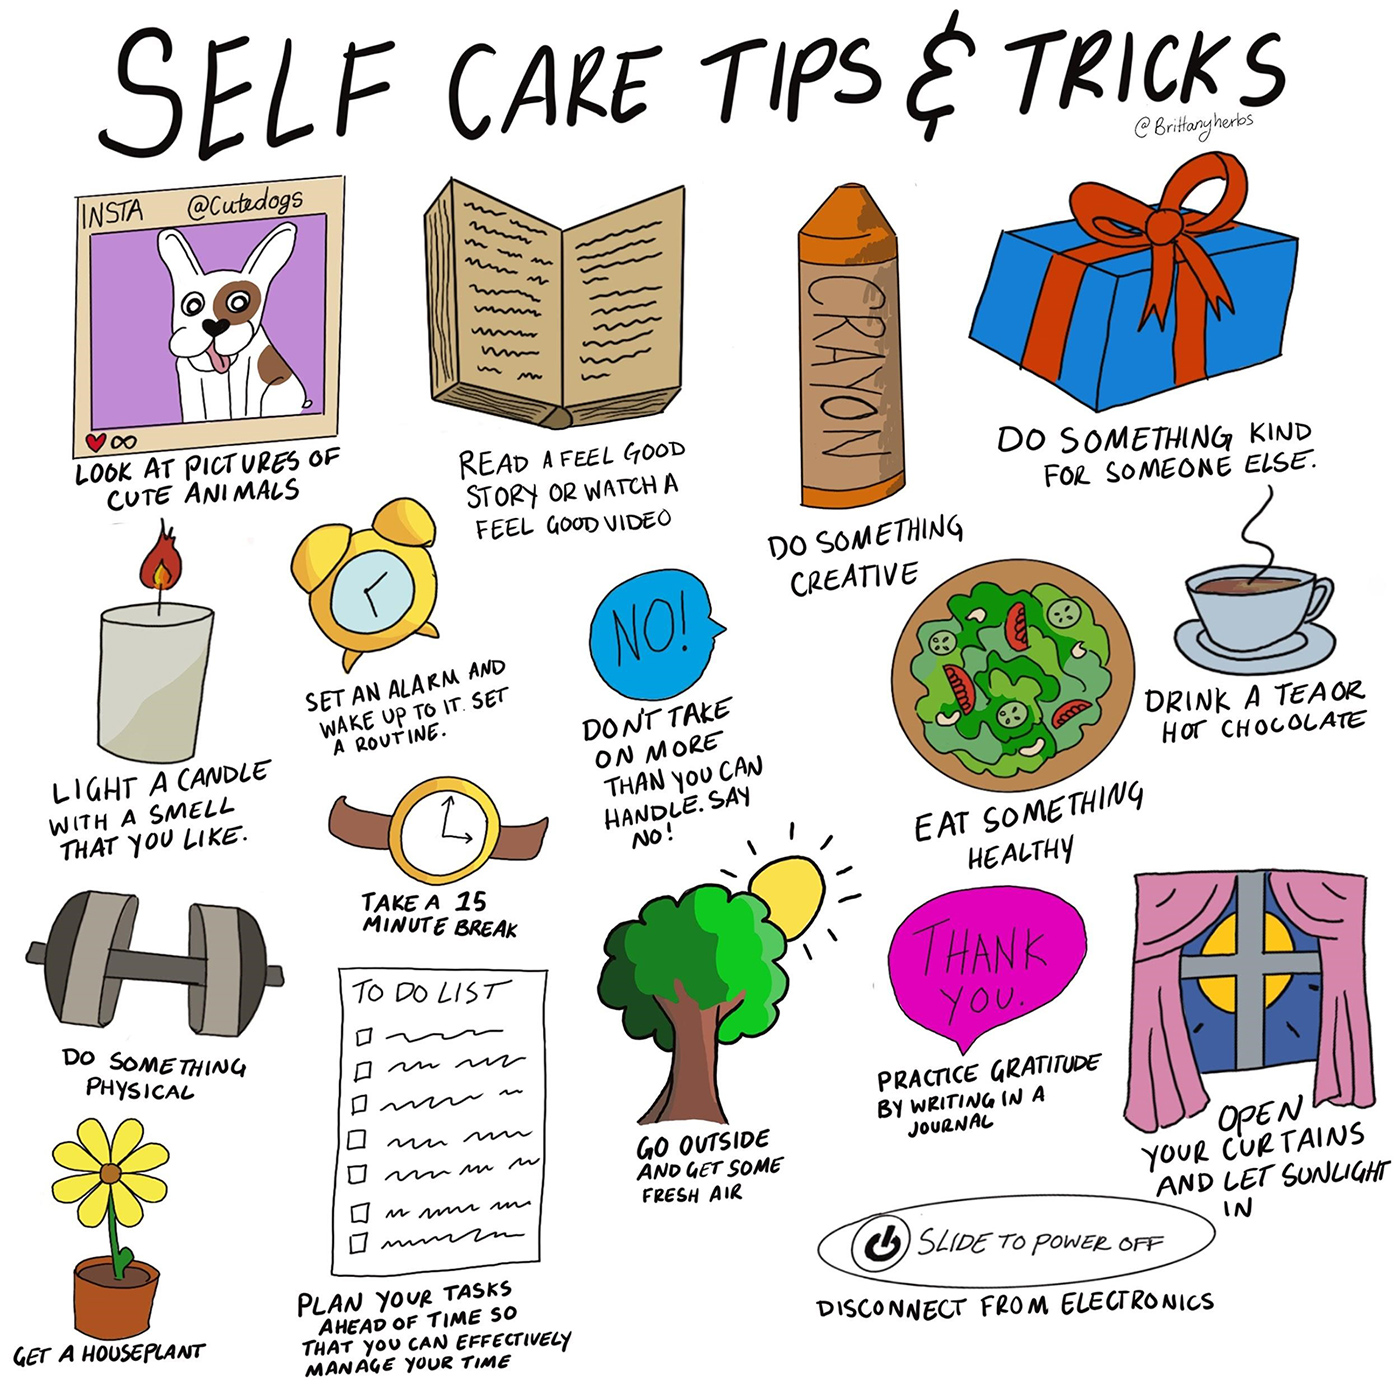 SELF CARE TIPS & TRICKS
@Brittanyherbs
INSTA @Cutedogs
LOOK AT PICTURES OF
CUTE ANIMALS
READ A FEEL GOOD
STORY OR WATCH A
FEEL GOOD VIDEO
CRAYON
DO SOMETHING
CREATIVE
DO SOMETHING KIND
FOR SOMEONE ELSE.
LIGHT A CANDLE
WITH A SMELL
THAT YOU LIKE.
SET AN ALARM AND
WAKE UP TO IT. SET
A ROUTINE.
NO!
DON'T TAKE
ON MORE
THAN YOU CAN
HANDLE. SAY
NO!
EAT SOMETHING
HEALTHY
DRINK A TEA OR
HOT CHOCOLATE
TAKE A 15
MINUTE BREAK
DO SOMETHING
PHYSICAL
TO DO LIST
PLAN YOUR TASKS
AHEAD OF TIME SO
THAT YOU CAN EFFECTIVELY
MANAGE YOUR TIME
GO OUTSIDE
AND GET SOME
FRESH AIR
THANK
YOU.
PRACTICE GRATITUDE
BY WRITING IN A
JOURNAL
OPEN
YOUR CURTAINS
AND LET SUNLIGHT
IN
GET A HOUSEPLANT
SLIDE TO POWER OFF
DISCONNECT FROM ELECTRONICS